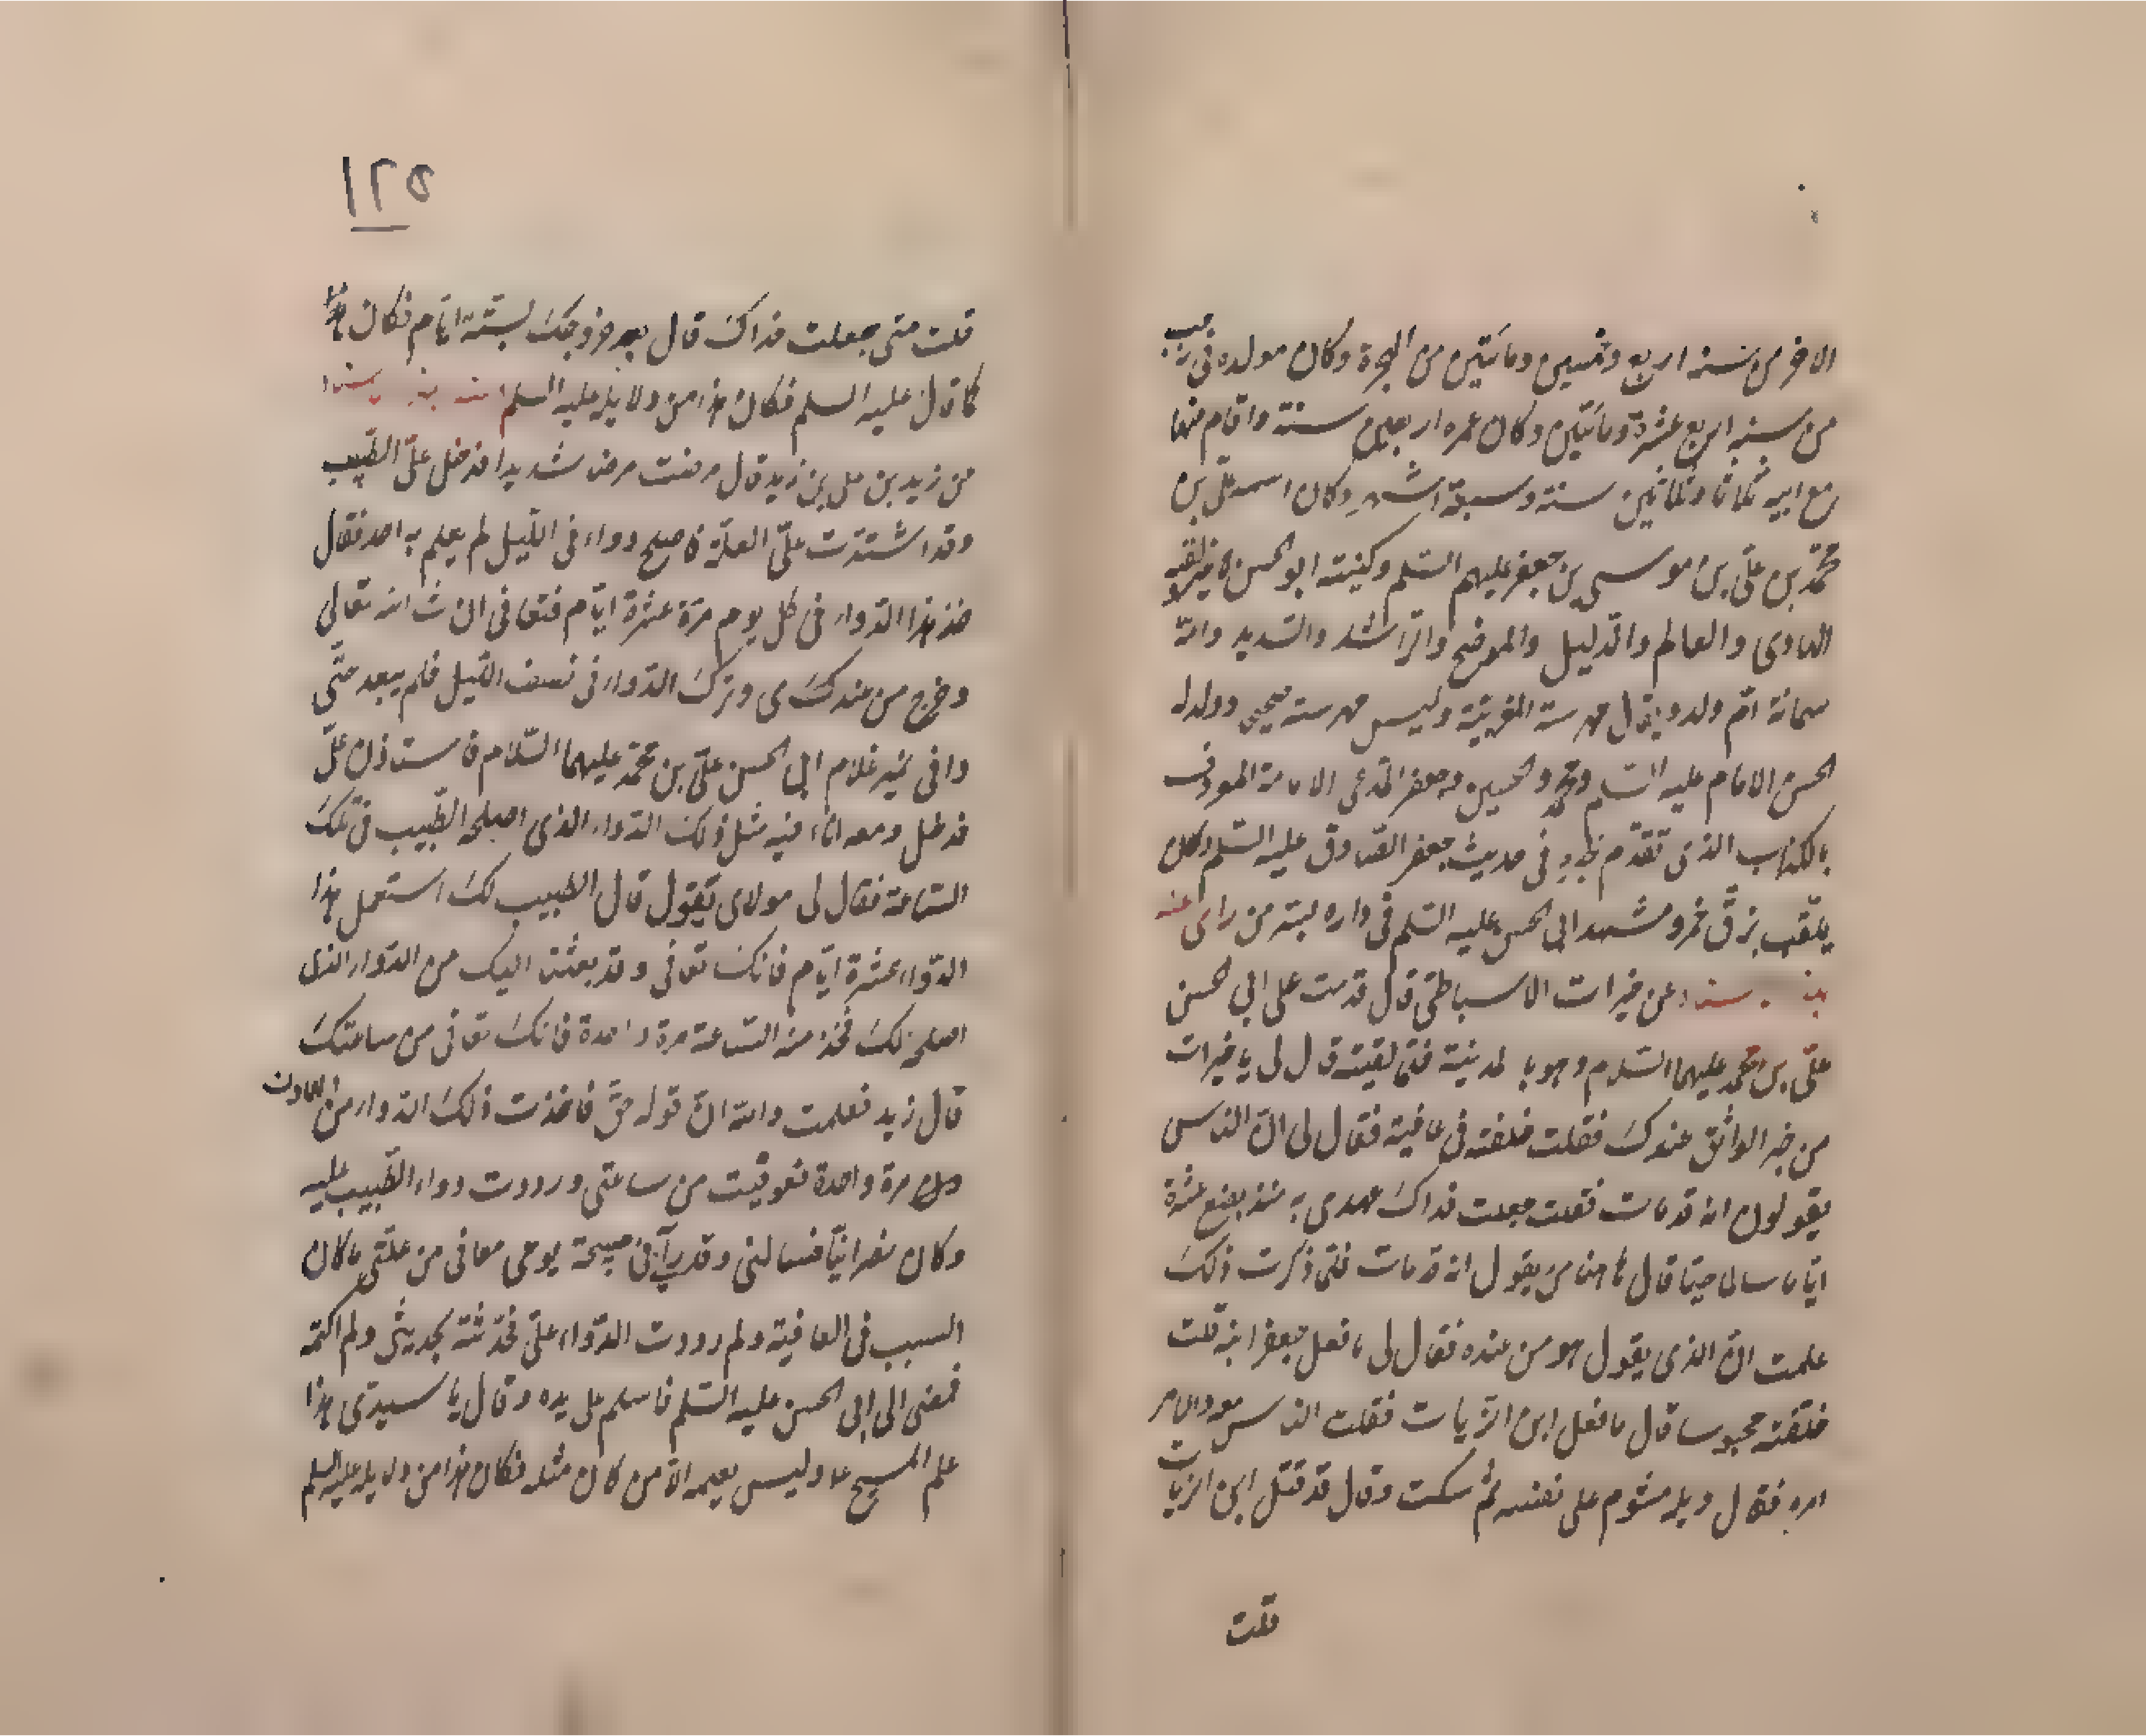 الاخر من سنه اربع وخمسين ومائتين من الهجرة وكان مولده فى رجب
من سنه اربع عشرة ومائتين وكان عمره اربعين سنة واقام منها
مع ابيه ثمانا وثلاثين سنة وسبعة اشهر وكان اسمه علىّ بن
محمّد بن علىّ بن موسى بن جعفر عليهم السّلم وكنيته ابو الحسن لا غير لقبه
الهادى والعالم والدّليل والموضح والرّاشد والسّديد وامّه
سمانة امّ ولد ويقال مهرسة المغربيّة وليس مهرسة صحيح وولد له
الحسن الامام عليه السّلم ومحمّد والحسين وجعفر المدّعى الامامة المعروف
بالكذاب الذى تقدّم فى حديث جعفر الصّادق عليه السّلم وكان
يلقّب بزقّ خمر ومشهد ابى الحسن عليه السّلم فى داره بسرّ من راى عنه
عن خيرات الاسباطى قال قدمت على ابى الحسن
علىّ بن محمّد عليهما السّلام وهو بالمدينة فلمّا لقيته قال لى يا خيرات
من خبر الواثق عندك فقلت خلفته فى عافية فقال لى انّ الناس
يقولون انه قد مات فقلت جعلت فداك عهدى به منذ بضع عشرة
ايّاما سالما حيّا قال هاهنا من يقول انه قد مات فلمّا ذكرت ذلك
علمت انّ الذى يقول هو من عنده فقال لى ما فعل جعفر ابنه قلت
خلّفته محبوسا قال ما فعل ابن الزّيات فقلت النّاس معه والامر
امره فقال ويله مشوم على نفسه ثمّ سكت وقال قد قتل ابن الزيات
قلت
١٢٥
قلت متى جعلت فداك قال بعد خروجك بستّة ايّام فكان هذا
كما قال عليه السلم فكان هذا من دلايله عليه السلم
عن زيد بن على بن زيد قال مرضت مرضا شديدا فدخل علىّ الطّبيب
وقد اشتدّت علىّ العلّة فاصلح دواء فى اللّيل لم يعلم به احد فقال
خذ هذا الدّواء فى كل يوم مرّة عشرة ايّام فتعافى ان شاء الله تعالى
وخرج من عندى وترك الدّواء فى نصف اللّيل فلم يبعد حتّى
وافى نمير غلام ابى الحسن علىّ بن محمّد عليهما السّلام فاستاذن علىّ
فدخل ومعه اناء فيه مثل ذلك الدّواء الذى اصلحه الطّبيب فى تلك
السّاعة فقال لى مولاى يقول قال الطبيب لك استعمل هذا
الدّواء عشرة ايّام فانك تعافى وقد بعثنا اليك من الدّواء الذى
اصلحه لك فخذ منه السّاعة مرة واحدة فانك تعافى من ساعتك
قال زيد فعلمت والله انّ قوله حقّ فاخذت ذلك الدّواء من الهاون
مرة واحدة فعوفيت من ساعتى ورددت دواء الطّبيب عليه
وكان نصرانيّا فسالنى وقد رآنى فى صبيحة يومى معافى من علّتى ما كان
السبب فى العافية ولم رددت الدّواء علىّ فحدّثته بحديثى ولم اكتمه
فمضى الى ابى الحسن عليه السّلم فاسلم على يده وقال يا سيدى هذا
علم المسيح وليس يعلمه الّا من كان مثله فكان هذا من دلايله عليه السلم